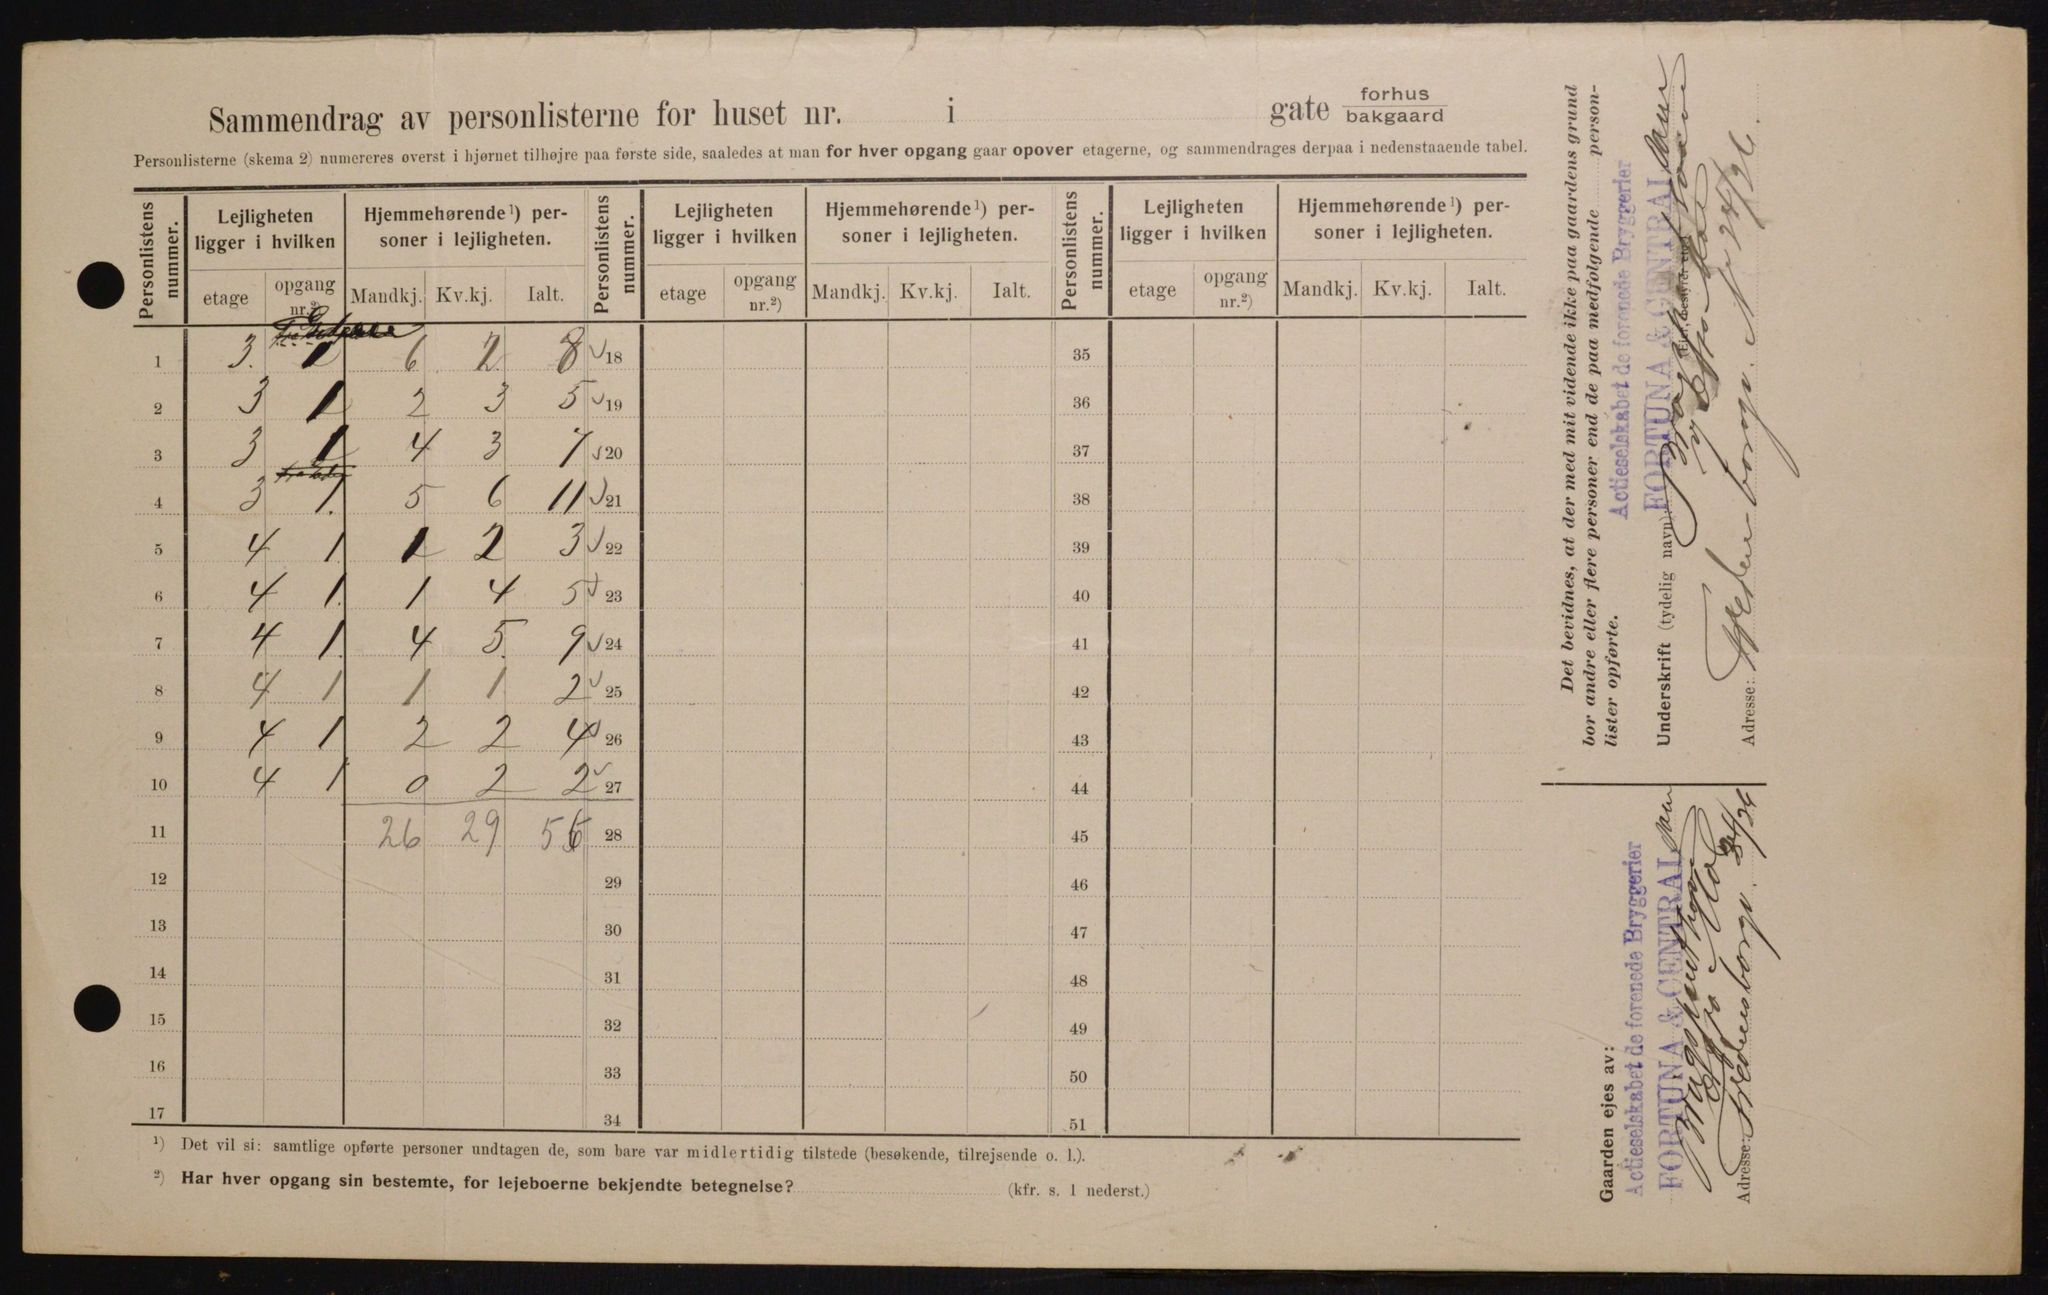 Sammendrag av personlisterne for huset nr. i gate forhus bakgaard
Personlisterne (skema 2) numereres øverst i hjørnet tilhøjre paa første side, saaledes at man for hver opgang gaar opover etagerne, og sammendrages derpaa i nedenstaaende tabel.
Personlistens nummer. Lejligheten ligger i hvilken Hjemmehørende ¹) personer i lejligheten. Personlistens nummer. Lejligheten ligger i hvilken Hjemmehørende ¹) personer i lejligheten. Personlistens nummer. Lejligheten ligger i hvilken Hjemmehørende ¹) personer i lejligheten.
etage opgang nr.²) Mandkj. Kv.kj. Ialt. etage opgang nr.²) Mandkj. Kv.kj. Ialt. etage opgang nr.²) Mandkj. Kv.kj. Ialt.
1 3. 1 6 2 8 18 35
2 3 1 2 3 5 19 36
3 3 1 4 3 7 20 37
4 3 1. 5 6 11 21 38
5 4 1 1 2 3 22 39
6 4 1. 1 4 5 23 40
7 4 1. 4 5. 9 24 41
8 4 1 1 1 2 25 42
9 4 1 2 2 4 26 43
10 4 1 0 2 2 27 44
11 26 29 56 28 45
12 29 46
13 30 47
14 31 48
15 32 49
16 33 50
17 34 51
¹) Det vil si: samtlige opførte personer undtagen de, som bare var midlertidig tilstede (besøkende, tilrejsende o. l.).
²) Har hver opgang sin bestemte, for lejeboerne bekjendte betegnelse? (kfr. s. 1 nederst.)
Det bevidnes, at der med mit vidende ikke paa gaardens grund
bor andre eller flere personer end de paa medfølgende person-
lister opførte.
Actieselskabet de forenede Bryggerier
FORTUNA & CENTRAL
Underskrift (tydelig navn):
(Ejer, bestyrer etc.)
Adresse: Fredensborgv. 24/26.
Gaarden ejes av:
Actieselskabet de forenede Bryggerier
FORTUNA & CENTRAL
Adresse: Fredensborgv. 24/26